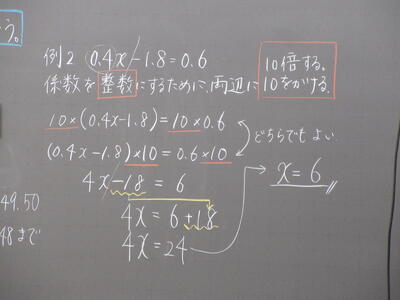 う。
例2 0.4x-1.8=0.6
係数を整数にするために、両辺に
10倍する。
10をかける。
10×(0.4x-1.8)=10×0.6
(0.4x-1.8)×10=0.6×10
どちらでもよい。
4x-18=6
4x=6+18
4x=24
x=6
49.50
48まで